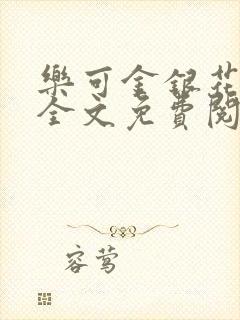 樂可金銀花
全文免費閱
容莺